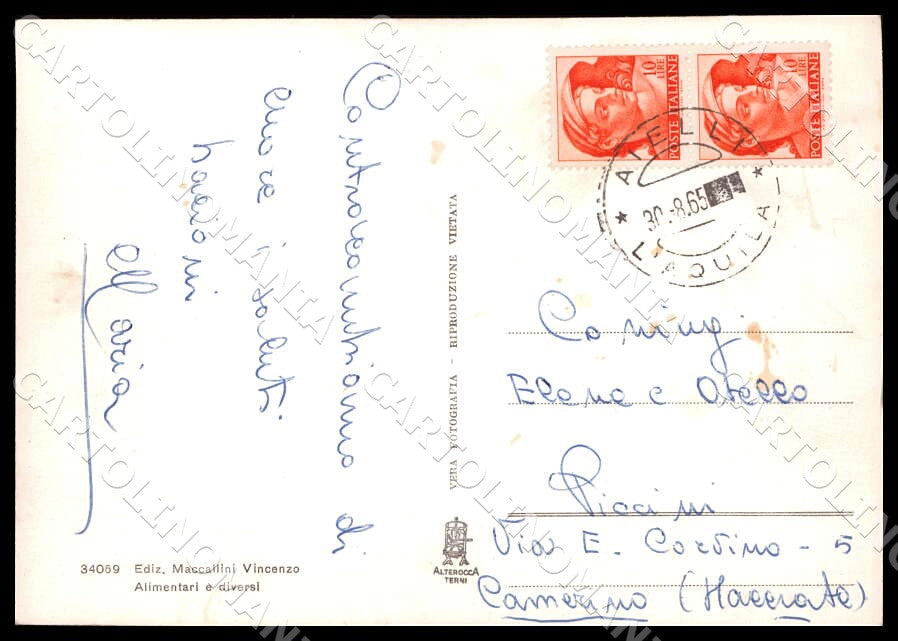 Contraccambiamo di
cuore i saluti
bacioni
Maria
34069 Ediz. Maccallini Vincenzo
Alimentari e diversi
VERA FOTOGRAFIA - RIPRODUZIONE VIETATA
ALTEROCCA
TERNI
10 LIRE
POSTE ITALIANE
10 LIRE
POSTE ITALIANE
AIELLI
30.8.65
L'AQUILA
Coniug.
Elena e Otello
Piccini
Via E. Cortino - 5
Camerino (Macerata)
CARTOLINOMANIA